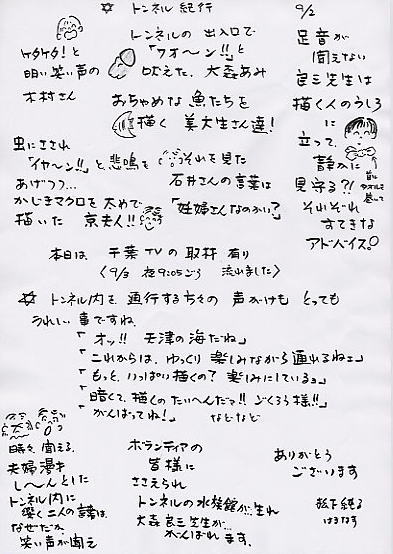 ☆ トンネル 紀行
9/2
ケタケタ!と
明い笑い声の
木村さん
トンネルの 出入口で
「ワオ〜ン!!」と
吠えた、大森あみ
おちゃめな 魚たちを
描く 美大生さん達!
虫にさされ
「イヤ〜ン!!」と、悲鳴を
あげつつ…
かじきマグロを 太めで
描いた 京夫人!!
それを見た
石井さんの 言葉は
「妊婦さんなのかい?」
足音が
聞えない
良三先生は
描く人のうしろ
に
立って、
静かに
見守る?!
それぞれ
すてきな
アドバイス。
首に
タオルを
巻って
本日は 千葉TVの 取材 有り
〈9/3 夜9:05ごろ 流れました〉
☆ トンネル内を 通行する方々の 声がけも とっても
うれしい 事ですね
「オッ!! 天津の海だね」
「これからは、ゆっくり 楽しみながら通れるねェ」
「もっと、いっぱい描くの? 楽しみにしているョ」
「暗くて、描くのたいへんだァ!! ごくろう様!!」
「がんばってね!」 などなど
時々 聞える、
夫婦漫才
し〜んとした
トンネル内に
響く二人の言葉は、
なぜだか、
笑い声が聞え
ボランティアの
皆様に
ささえられ
トンネルの水族館が生れ
大森良三先生が
がんばれ ます。
ありがとう
ございます
松下
はるなす